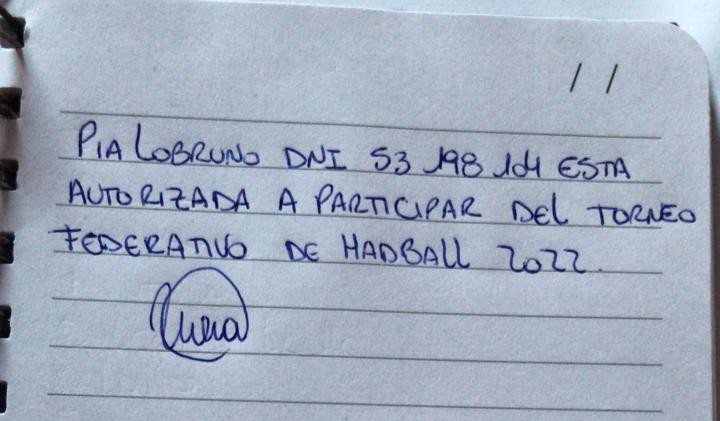 / /
PIA LOBRUNO DNI 53 198 104 ESTA
AUTORIZADA A PARTICIPAR DEL TORNEO
FEDERATIVO DE HADBALL 2022.